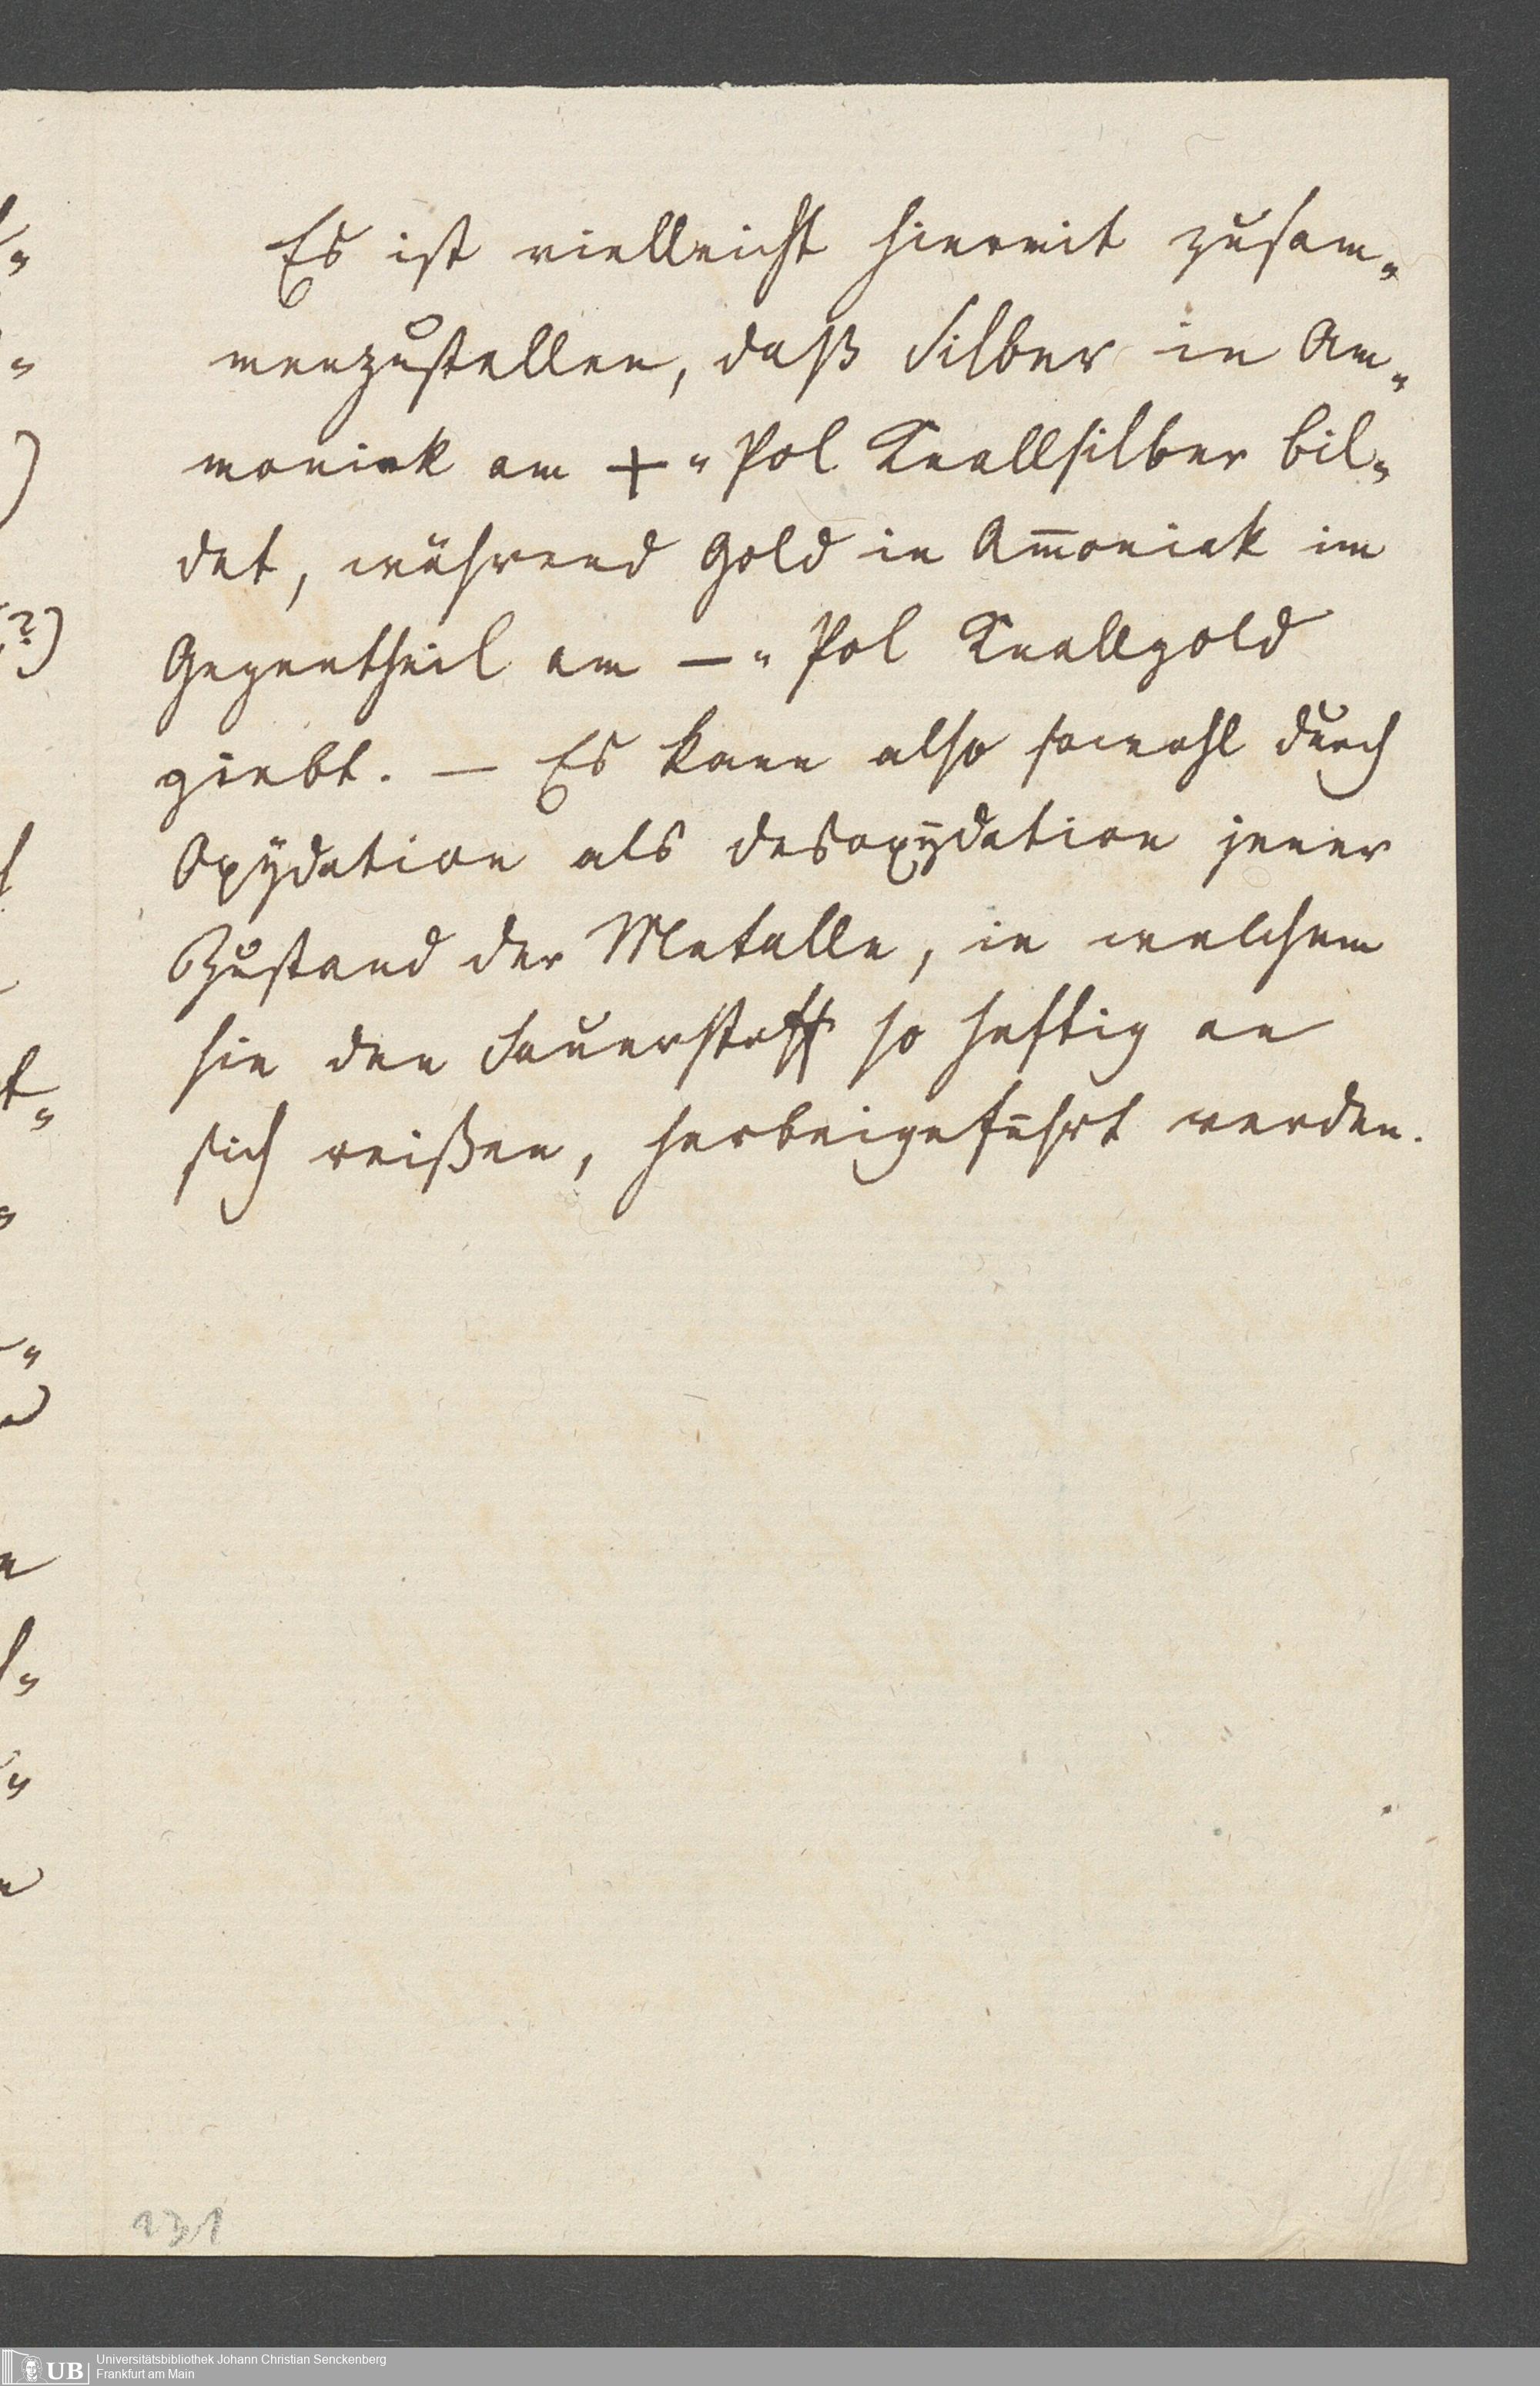 Es ist vielleicht hiermit zusam-
menzustellen, daß Silber in Am-
moniak am +-Pol Knallsilber bil-
det, während Gold in Am̅oniak im
Gegentheil am —-Pol Knallgold
giebt. — Es kann also sowohl durch
Oxÿdation als desoxÿdation jener
Zustand der Metalle, in welchem
sie den Sauerstoff so heftig an
sich reißen, herbeigeführt werden.
131
UB Universitätsbibliothek Johann Christian Senckenberg
Frankfurt am Main